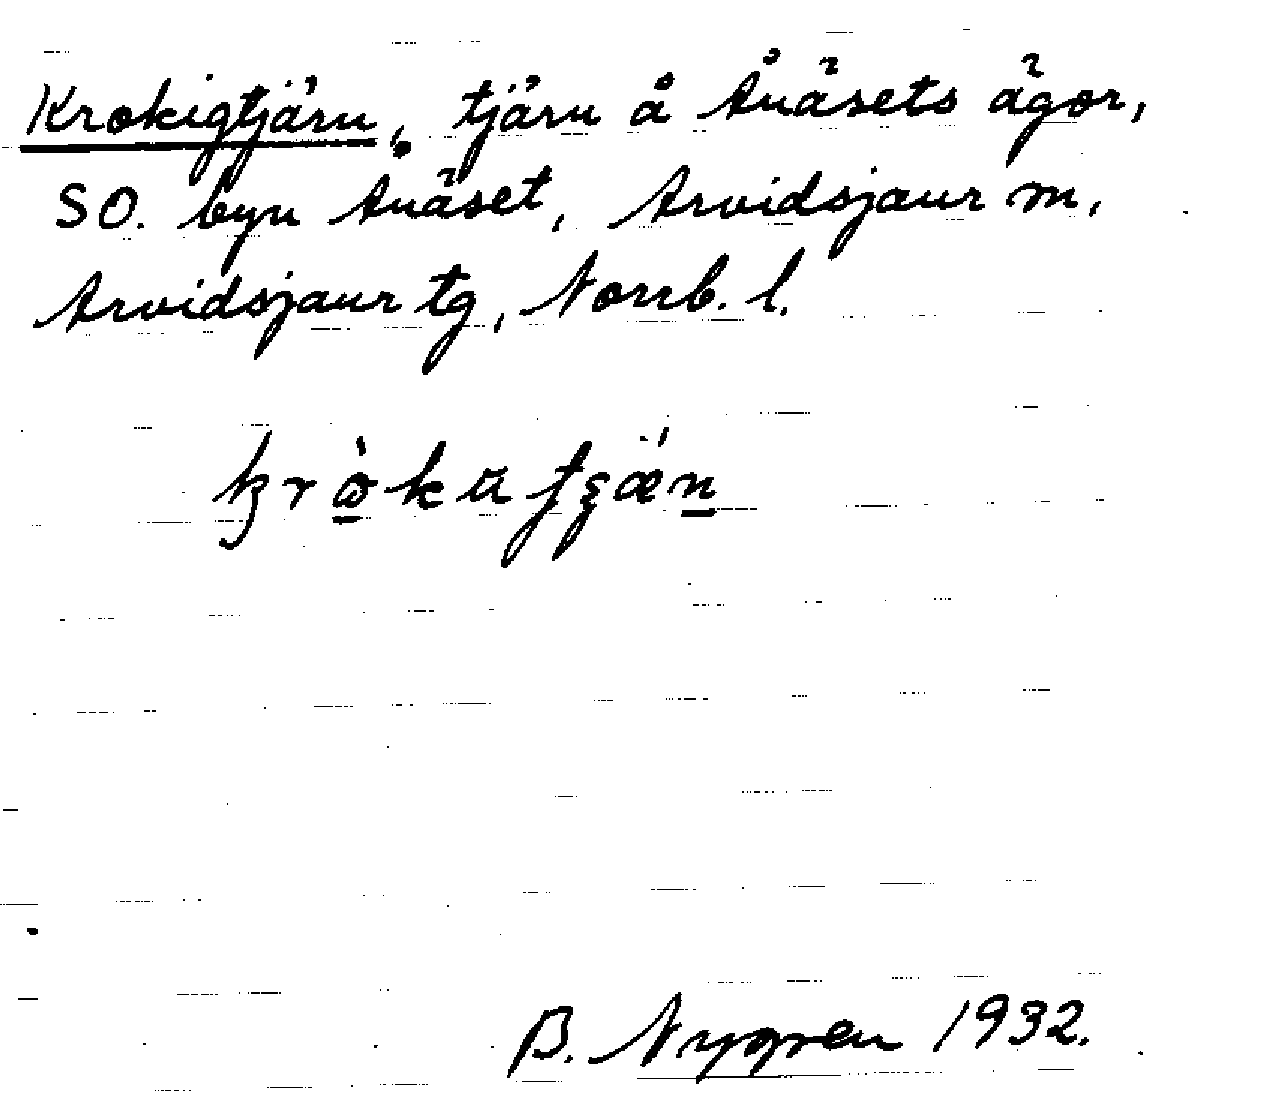 Krokigtjärn, tjärn å Ånäsets ägor,
SO. byn Ånäset, Arvidsjaur sn,
Arvidsjaur tg, Norrb. l.
B. Nygren 1932.